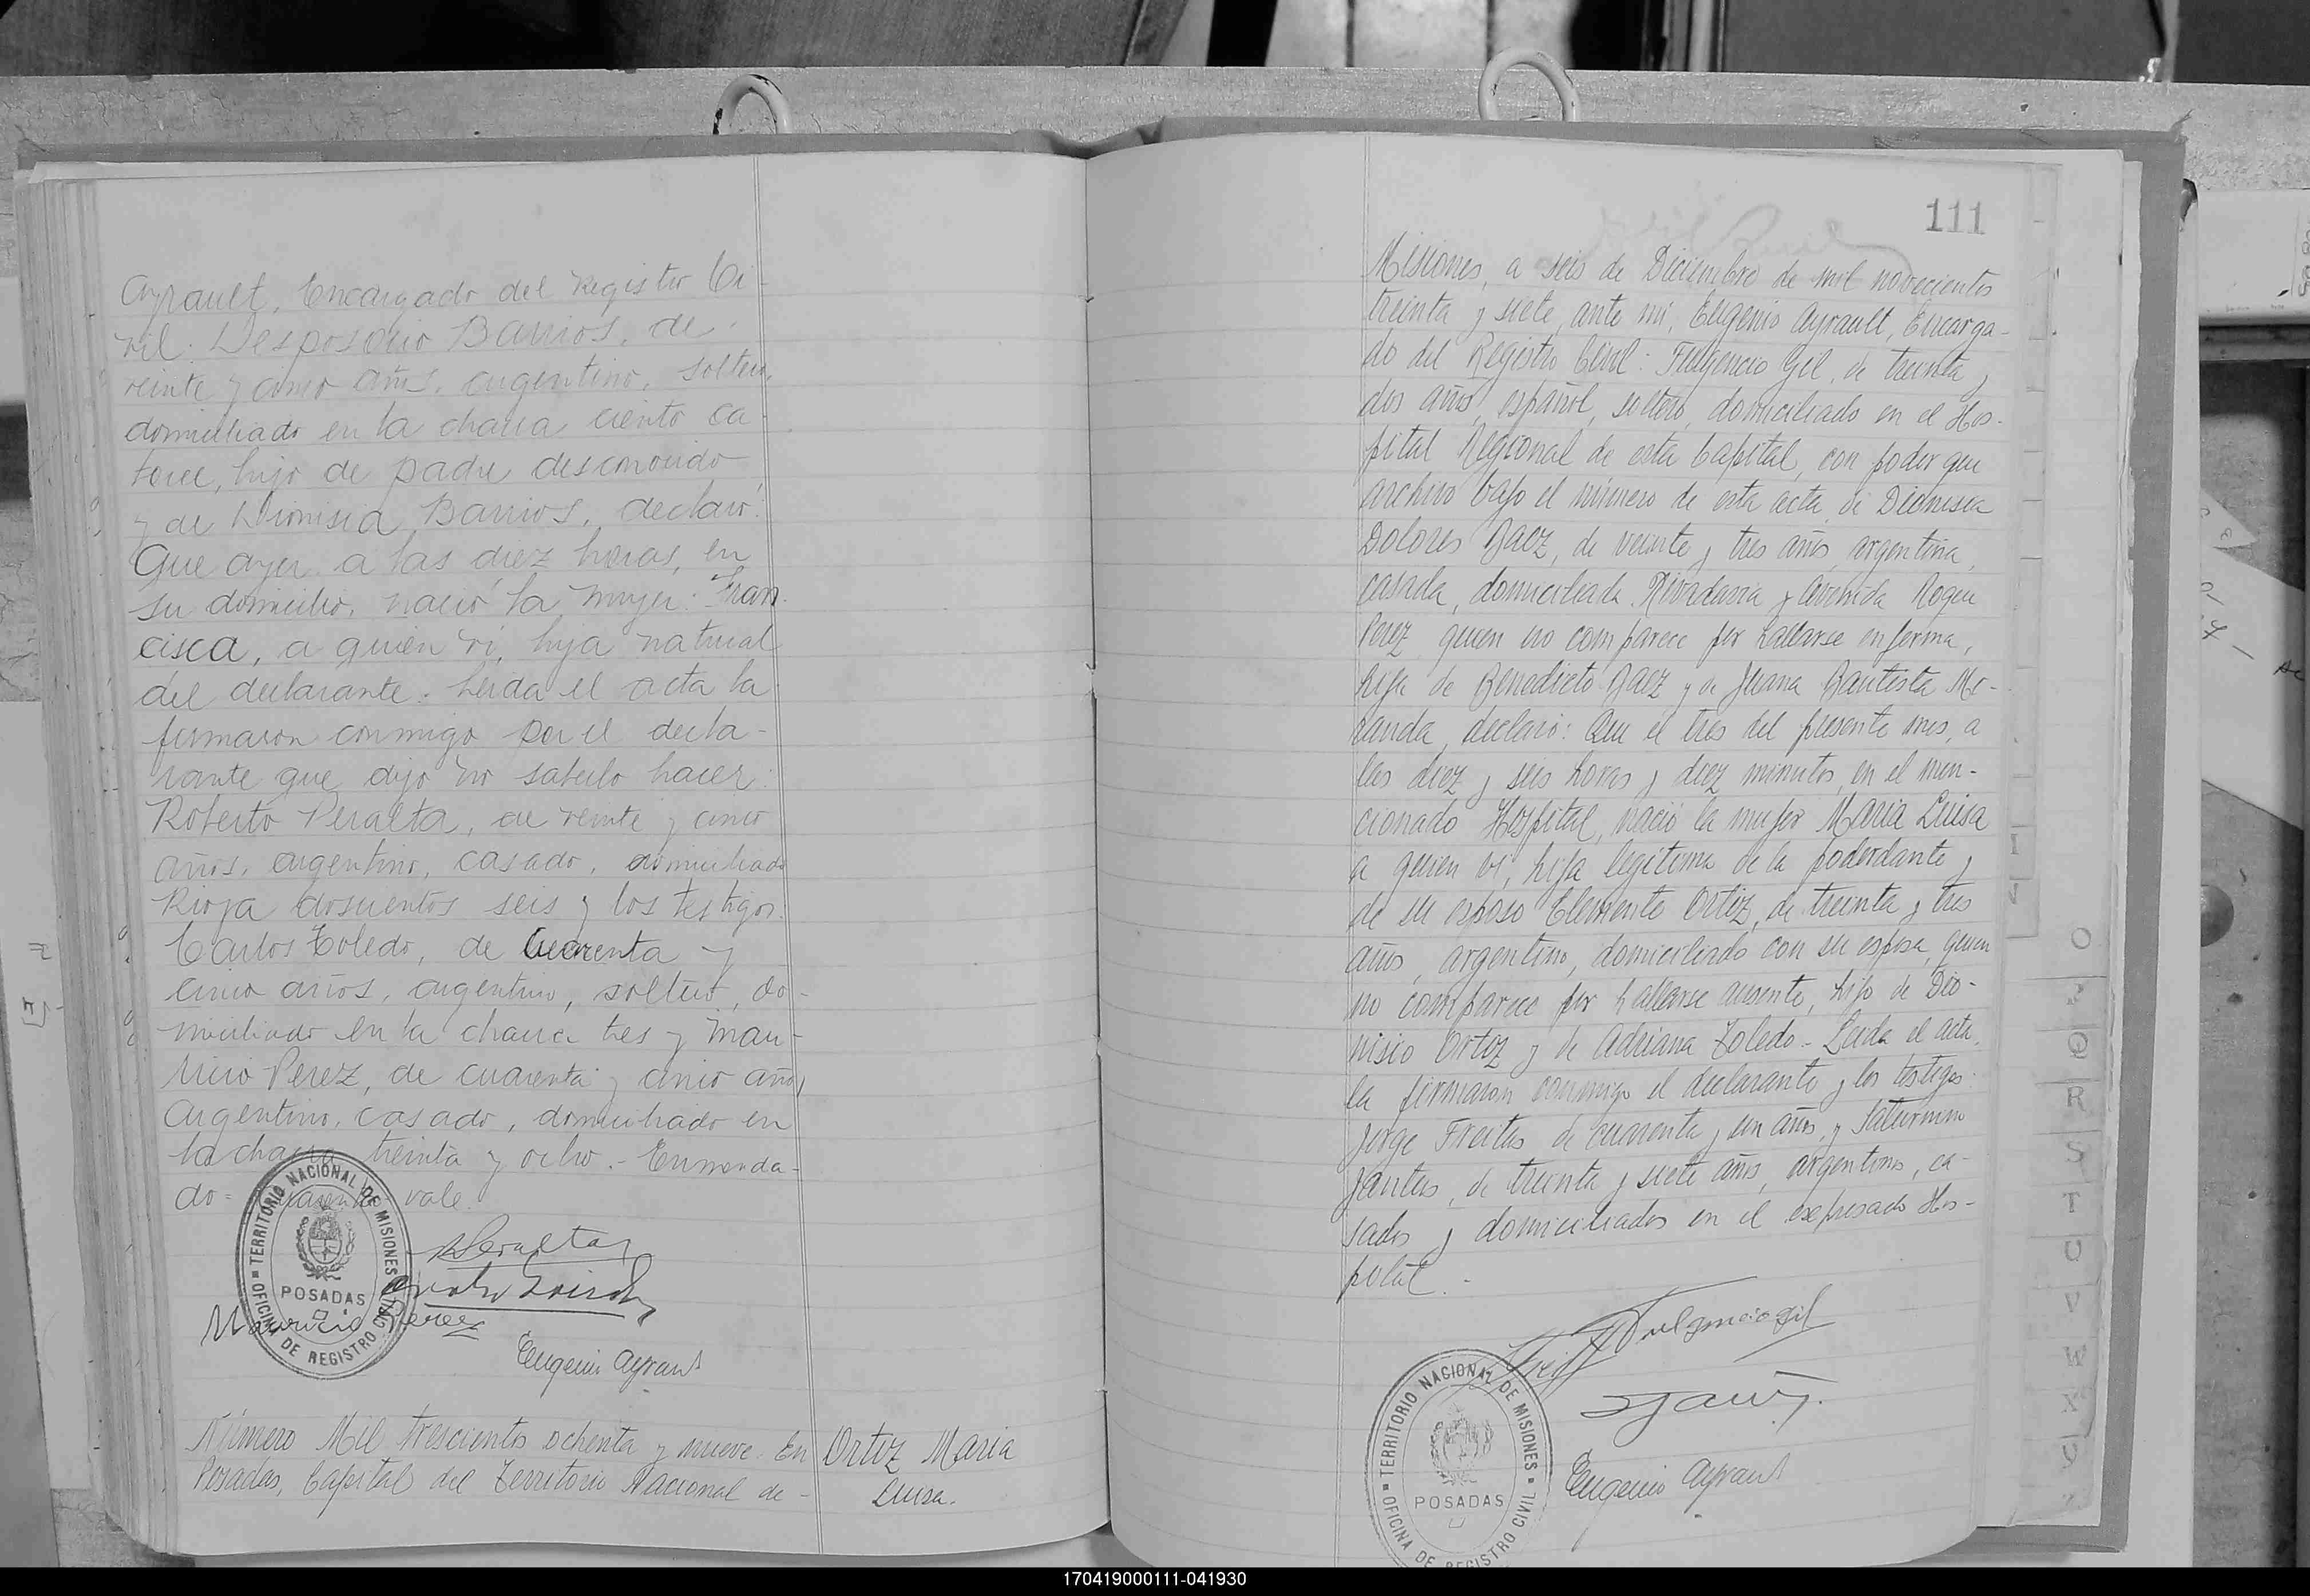 Ayrault, Encargado del Registro Ci-
vil: Desposorio Barrios, de
veinte y cinco años, argentino, soltero,
domiciliado en la chacra ciento ca-
torce, hijo de padre desconocido
y de Dionisia Barrios, declaró:
Que ayer a las diez horas, en
su domicilio, nació la mujer: Fran-
cisca, a quien vi, hija natural
del declarante. Leida el acta la
firmaron conmigo por el decla-
rante que dijo no saberlo hacer:
Roberto Peralta, de veinte y cinco
años, argentino, casado, domiciliado
Rioja doscientos seis y los testigos:
Carlos Toledo, de cuarenta y
cinco años, argentino, soltero, do-
miciliado en la chacra tres y Mau-
ricio Perez, de cuarenta y cinco años,
argentino, casado, domiciliado en
la chacra treinta y ocho.- Enmenda-
do = cuarenta vale.
RPeralta
Mauricio Perez
Eugenio Ayrault
TERRITORIO NACIONAL DE MISIONES
POSADAS
OFICINA DE REGISTRO CIVIL
Número Mil trescientos ochenta y nueve. En
Posadas, Capital del Territorio Nacional de-
Ortiz Maria
Luisa.
111
Misiones, a seis de Diciembre de mil novecientos
treinta y siete, ante mi, Eugenio Ayrault, Encarga-
do del Registro Civil: Fulgencio Gil, de treinta y
dos años, español, soltero, domiciliado en el Hos-
pital Regional de esta Capital, con poder que
archivo bajo el número de esta acta, de Dionisia
Dolores Baez, de veinte y tres años, argentina,
casada, domiciliada Rivadavia y Avenida Roque
Perez, quien no comparece por hallarse enferma,
hija de Benedicto Baez y de Juana Bautista Mi-
randa, declaró: Que el tres del presente mes, a
las diez y seis horas y diez minutos, en el men-
cionado Hospital, nació la mujer Maria Luisa
a quien vi, hija legítima de la poderdante y
de su esposo Clemente Ortiz, de treinta y tres
años, argentino, domiciliado con su esposa, quien
no comparece por hallarse ausente, hijo de Dio-
nisio Ortiz y de Adriana Toledo.- Leida el acta,
la firmaron conmigo el declarante y los testigos:
Jorge Freites de cuarenta y un años, y Saturnino
Jantus, de treinta y siete años, argentinos, ca-
sados y domiciliados en el expresado Hos-
pital.-
Fulgencio Gil
Eugenio Ayrault
TERRITORIO NACIONAL DE MISIONES
POSADAS
OFICINA DE REGISTRO CIVIL
O
Q
R
S
T
U
V
W
X
170419000111-041930